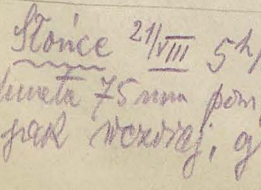 Słońce 21/VIII 5h/
luneta 75 mm pow
jak wczoraj, g